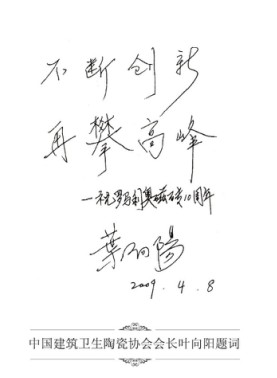 不断创新
再攀高峰
—祝罗马利奥磁砖10周年
葉向陽
2009.4.8
中国建筑卫生陶瓷协会会长叶向阳题词